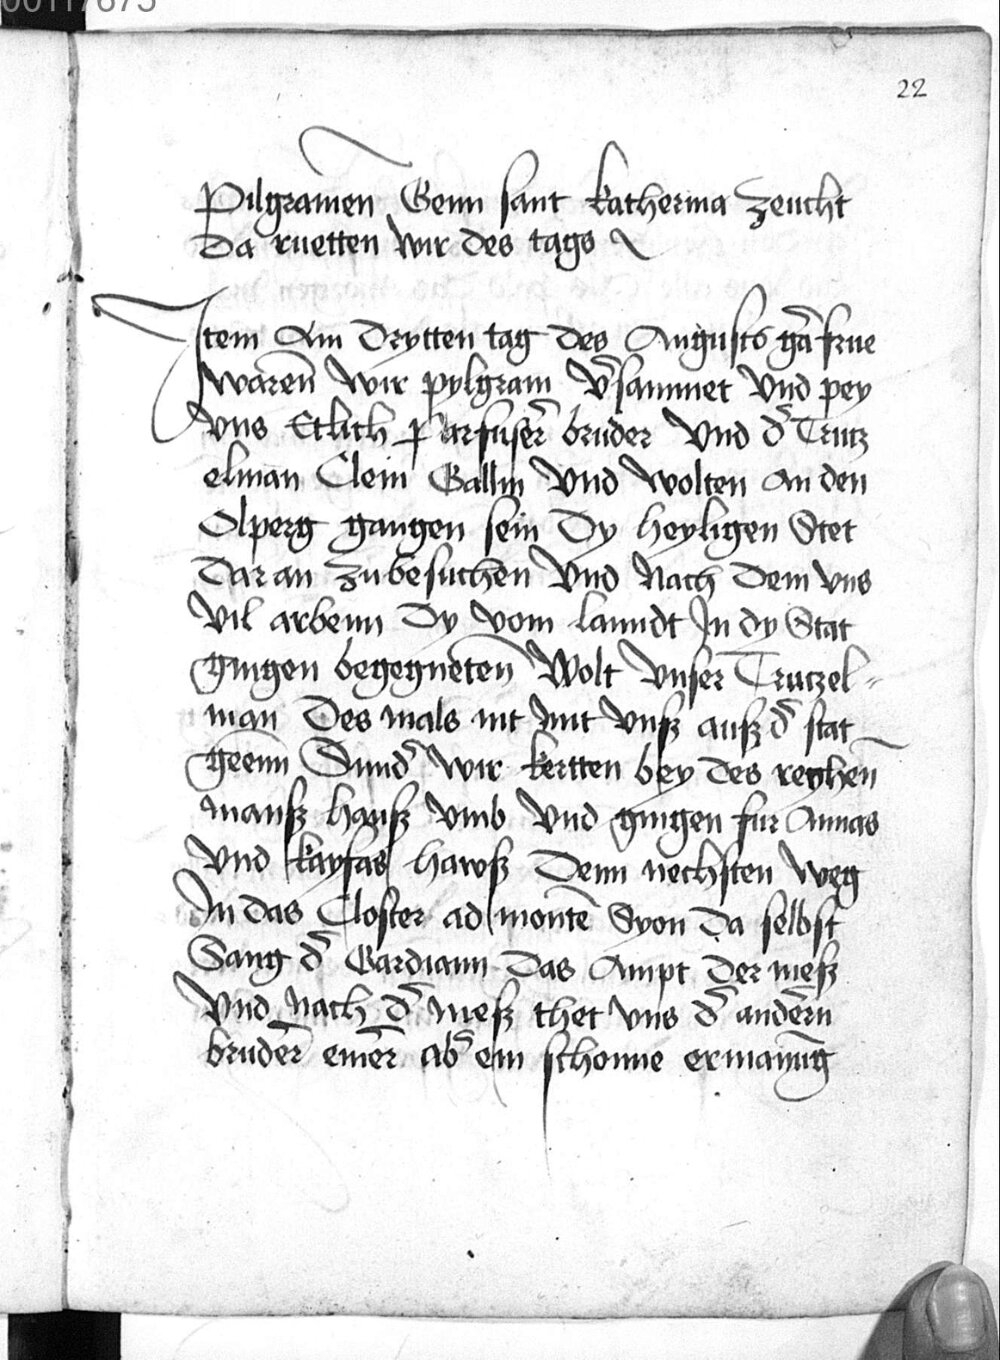 00117675
22
Pilgramen Genn sant katherina zeucht
Da ruetten wir des tags
Item Am Drytten tag des Augusts gar frue
waren wir pylgram v̄samnet Vnd pey
vns Etlich parfuser bruder Vnd d̄ Trutz
elman Clein Gallin Vnd wolten An den
Olperg gangen sein Dy heyligen Stet
Dar an zu besuchen Vnd Nach Dem vns
vil arbenn Dy vom lanndt In dy Stat
gingen begegneten Wolt vnser Trutzel-
man Des mals nit mit vnß auß d̄ stat
geenn Sund̄ wir kertten bey des reychen̄
manß hauß vmb Vnd gingen fur Annas
Vnd kayfas hawß Denn nechsten weg
In das Closter ad monte Syon Da selbst
Sang d̄ Gardiann Das Ampt Der meß
Vnd Nach d̄ meß thet vns d̄ andern
bruder einer ab̄ ein schonne ermanūg